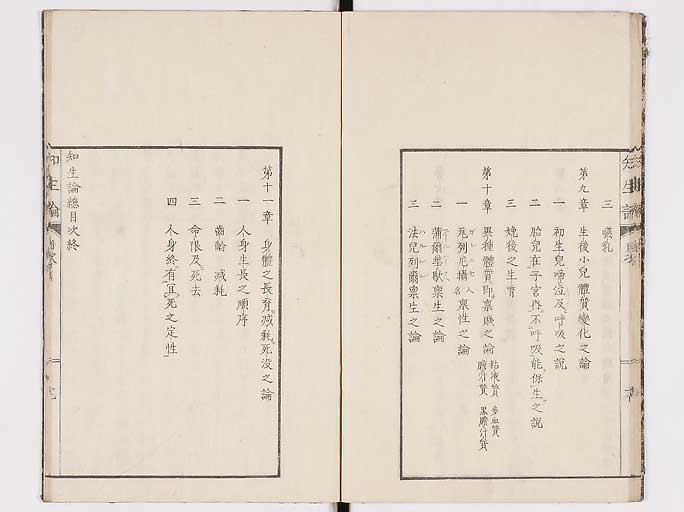 三 哺乳
第九章 生後小兒體質變化之論
一 初生兒啼泣及呼吸之說
二 胎兒在子宮內不呼吸能保生之說
三 娩後之生育
第十章 異種體質即稟賦之論 粘液質 多血質 膽汁質 黒膽汁質
一 稟性之論
二 稟生之論
三 法兒列爾稟生之論
第十一章 身體之長育減耗死没之論
一 人身生長之順序
二 齒齡減耗
三 命限及死去
四 人身終有宜死之定性
知生論總目次終
知生論